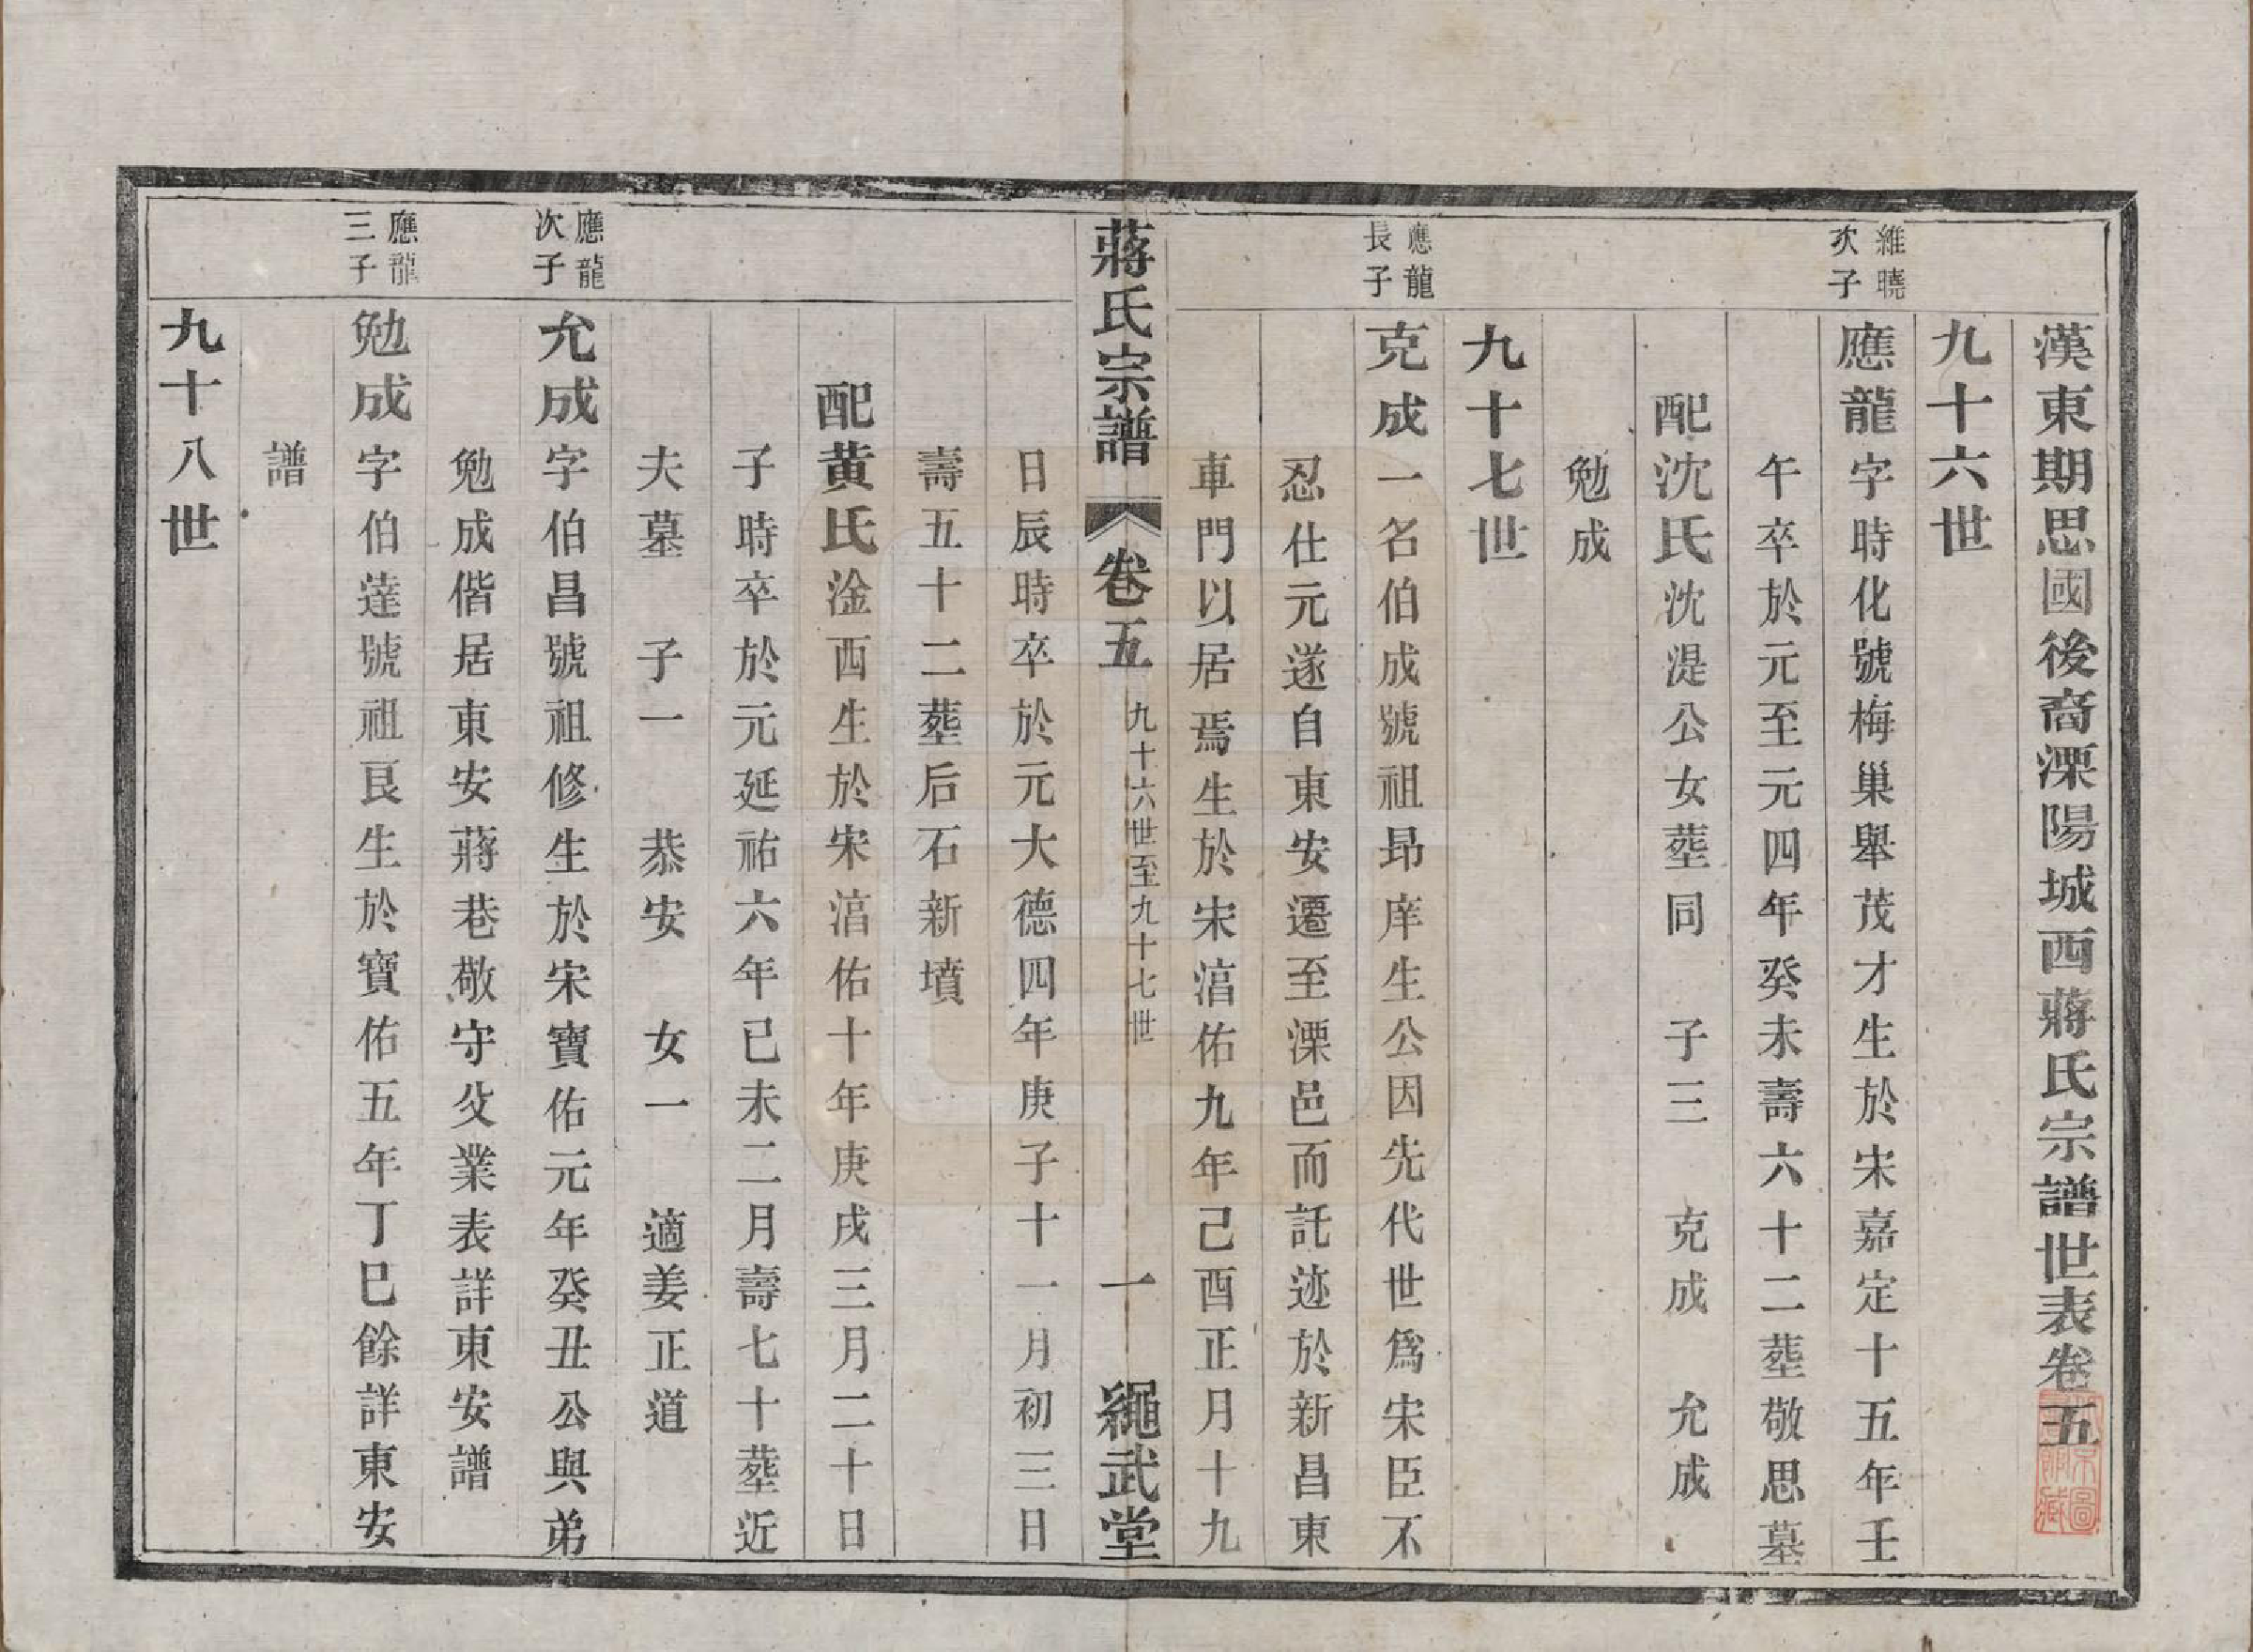 漢東期思國後裔溧陽城西蔣氏宗譜世表卷五
九十六世
維曉次子
應龍字時化號梅巢舉茂才生於宋嘉定十五年壬
午卒於元至元四年癸未壽六十二葬敬思墓
配沈氏沈湜公女葬同 子三 克成 允成
勉成
九十七世
應龍長子
克成一名伯成號祖昂庠生公因先代世爲宋臣不
忍仕元遂自東安遷至溧邑而託迹於新昌東
車門以居焉生於宋湻佑九年己酉正月十九
蔣氏宗譜 卷五 九十六世至九十七世 一 繩武堂
日辰時卒於元大德四年庚子十一月初三日
壽五十二葬后石新墳
配黄氏淦西生於宋湻佑十年庚戌三月二十日
子時卒於元延祐六年已未二月壽七十葬近
夫墓 子一 恭安 女一 適姜正道
應龍次子
允成字伯昌號祖修生於宋寶佑元年癸丑公與弟
勉成偕居東安蔣巷敬守父業表詳東安譜
應龍三子
勉成字伯達號祖艮生於寶佑五年丁巳餘詳東安
譜
九十八世